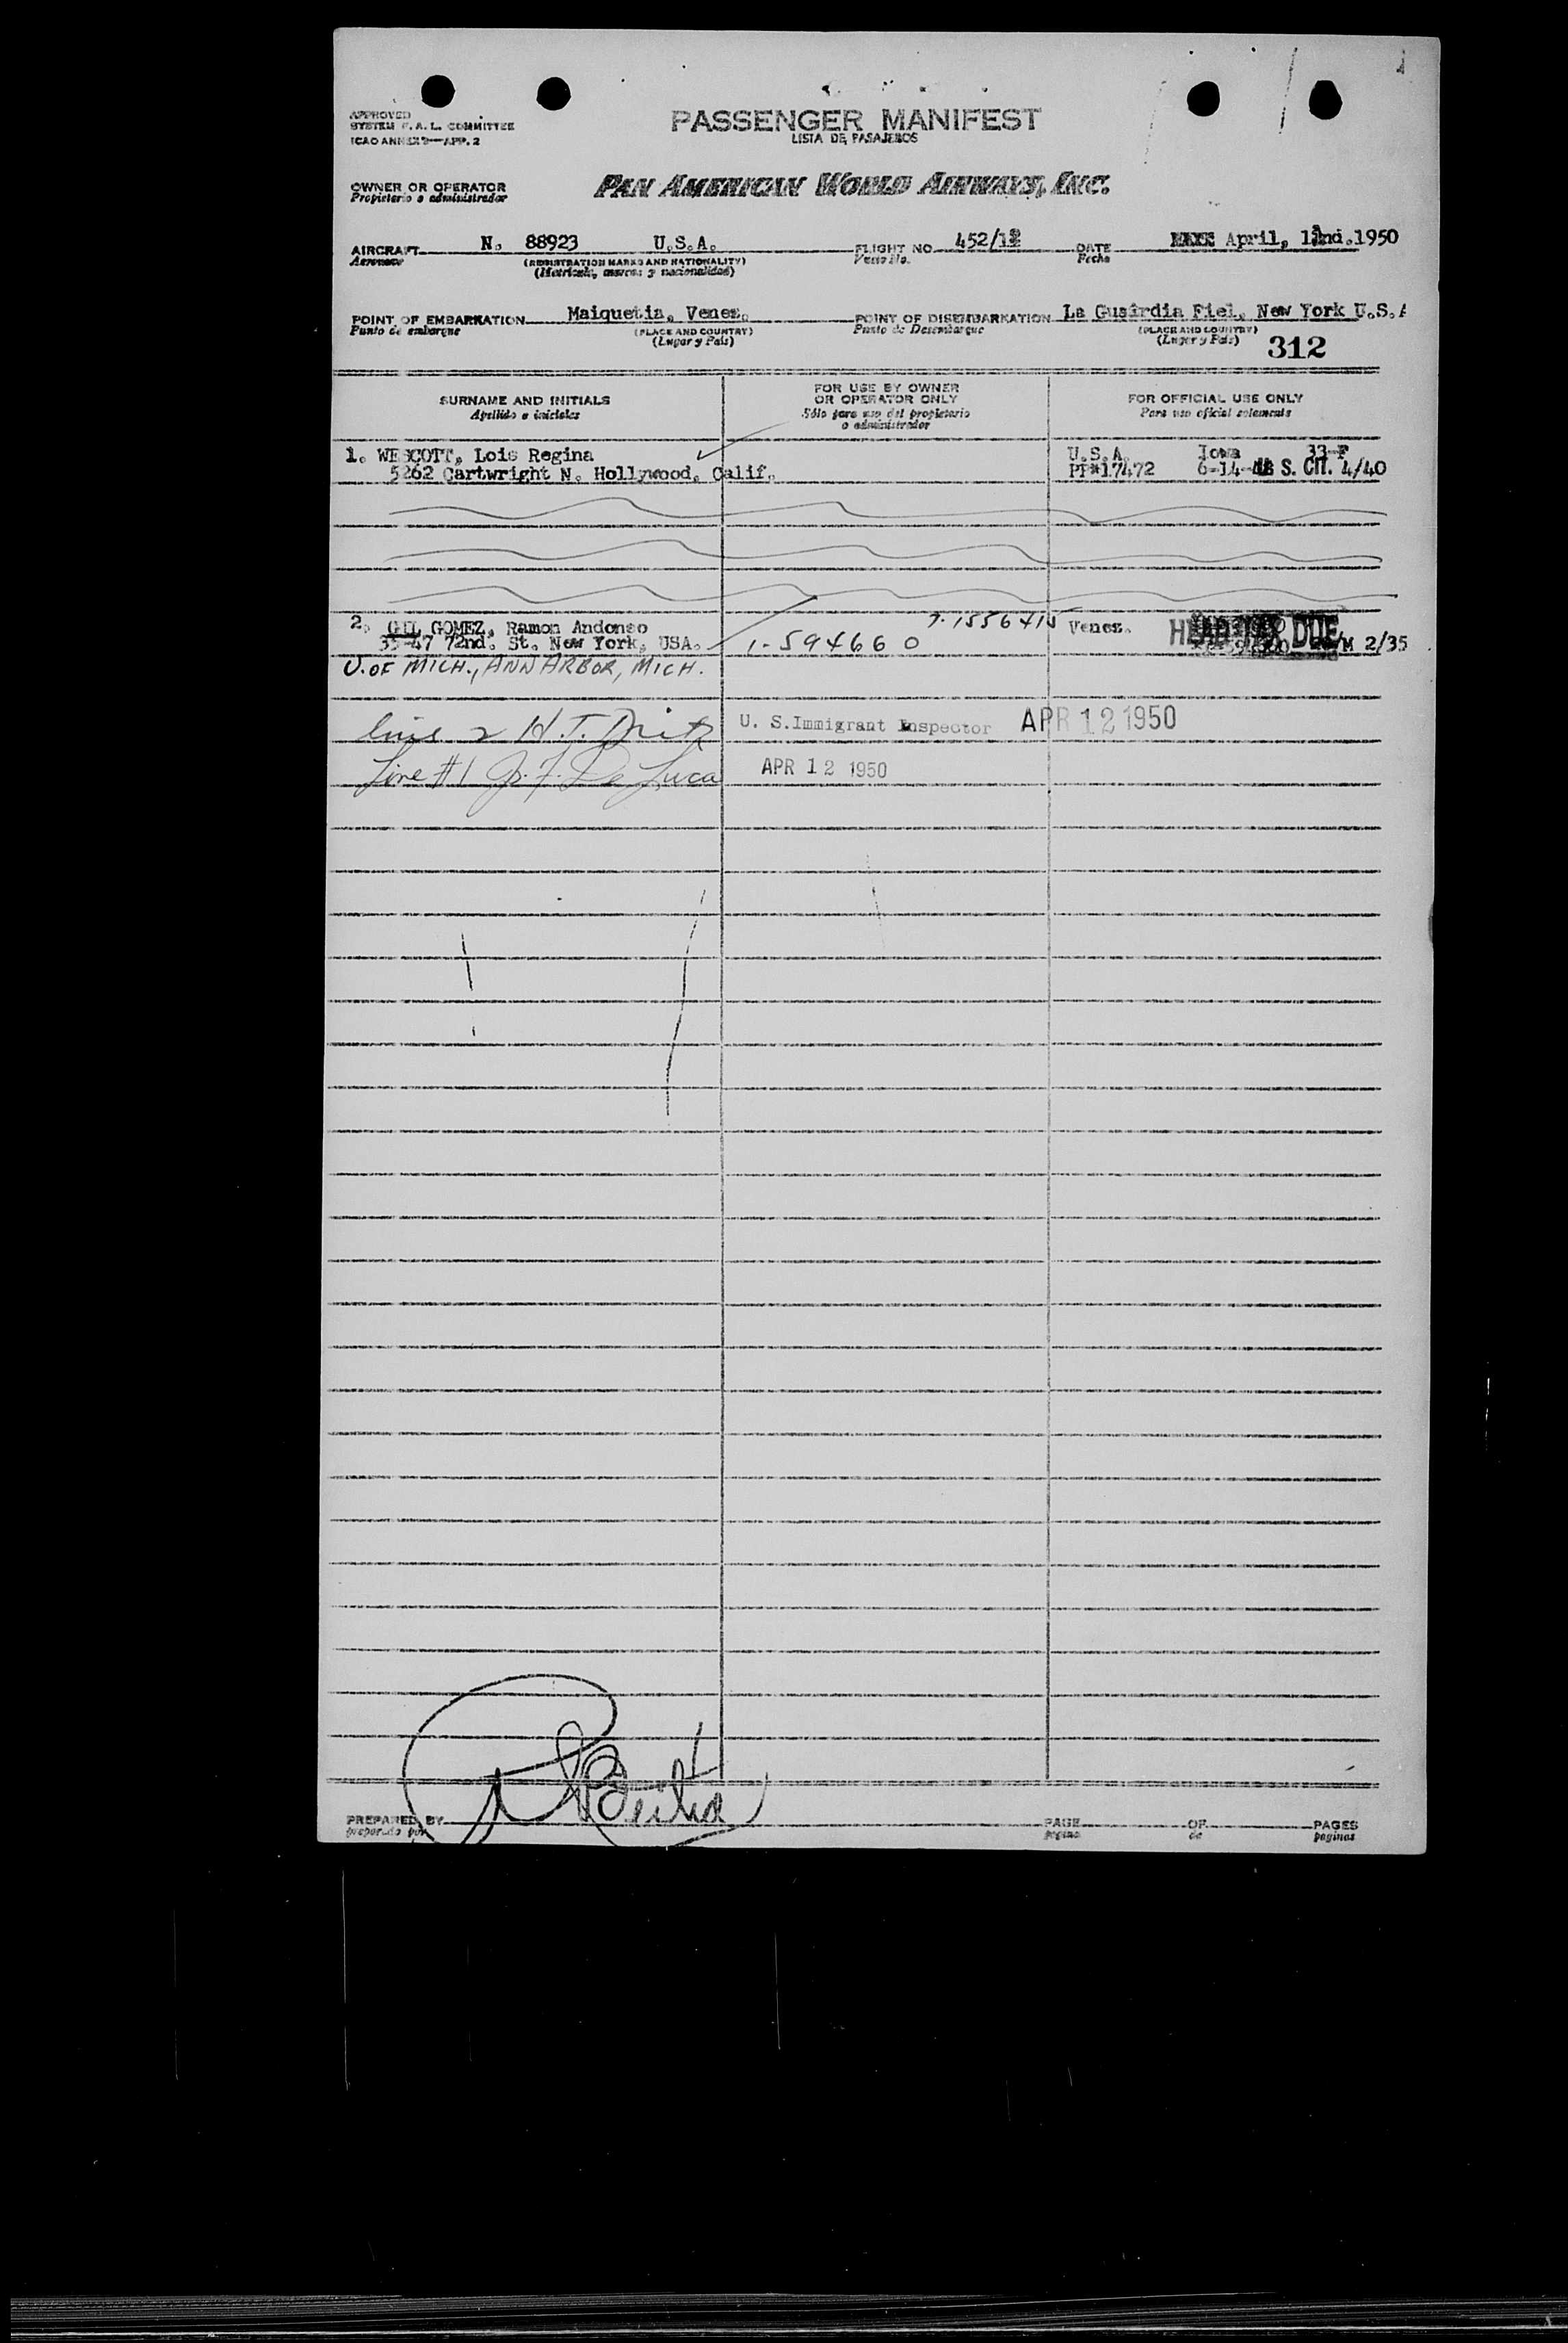 APPROVED
SYSTEM F. A. L. COMMITTEE
ICAO ANNEX 9—APP. 2
PASSENGER MANIFEST
LISTA DE PASAJEROS
OWNER OR OPERATOR
Propietario o administrador
PAN AMERICAN WORLD AIRWAYS, INC.
AIRCRAFT N. 88923 U.S.A. FLIGHT NO. 452/12 DATE April, 12nd.1950
Aeronave (REGISTRATION MARKS AND NATIONALITY) Vuelo No. Fecha
(Matricula, marcas y nacionalidad)
POINT OF EMBARKATION Maiquetia, Venez. POINT OF DISEMBARKATION La Guairdia Fiel, New York U.S.A
Punto de embarque (PLACE AND COUNTRY) Punto de Desembarque (PLACE AND COUNTRY)
(Lugar y País) (Lugar y País) 312
SURNAME AND INITIALS
Apellido e iniciales
FOR USE BY OWNER
OR OPERATOR ONLY
Sólo para uso del propietario
o administrador
FOR OFFICIAL USE ONLY
Para uso oficial solamente
1. WESCOTT, Lois Regina U.S.A. Iowa 33-F
5262 Cartwright N. Hollywood, Calif. PP#17472 6-14- S. CIT. 4/40
2. GIL GOMEZ, Ramon Andonso 1556415 Venez. HEAD TAX DUE
35-47 72nd. St. New York, USA. 1-594660 /M 2/35
U. OF MICH., ANN ARBOR, MICH.
line 2 H. T. U. S. Immigrant Inspector APR 12 1950
Line #1 De Luca APR 12 1950
PREPARED BY PAGE OF PAGES
preparado por página de páginas